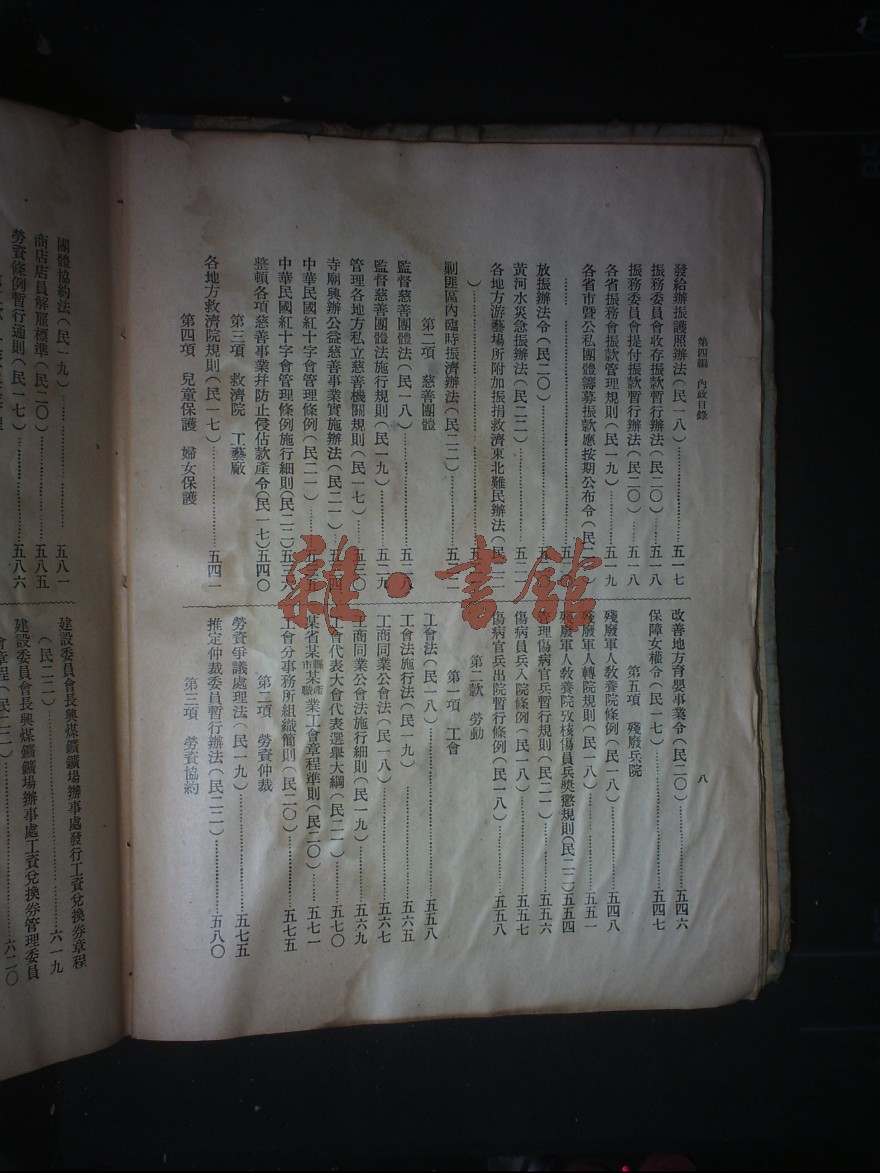 第四編　內政目錄
八
發給辦振護照辦法(民一八)…………五一七
振務委員會收存振款暫行辦法(民二〇)……五一八
振務委員會提付振款暫行辦法(民二〇)……五一八
各省振務會振款管理規則(民一九)…………五一九
各省市暨公私團體籌募振款應按期公布令(民二
放振辦法令(民二〇)…………五
黃河水災急振辦法(民二二)…………五二
各地方游藝場所附加振捐救濟東北難民辦法(民二一
)…………五
剿匪區內臨時振濟辦法(民二二)…………五二
第二項　慈善團體
監督慈善團體法(民一八)…………五二八
監督慈善團體法施行規則(民一九)…………五二九
管理各地方私立慈善機關規則(民一七)……五三〇
寺廟興辦公益慈善事業實施辦法(民二一)……五
中華民國紅十字會管理條例(民二一)……五
中華民國紅十字會管理條例施行細則(民二二)五三
整頓各項慈善事業幷防止侵佔款產令(民一七)五四〇
第三項　救濟院　工藝廠
各地方救濟院規則(民一七)…………五四一
第四項　兒童保護　婦女保護
改善地方育嬰事業令(民二〇)…………五四六
保障女權令(民一七)…………五四七
第五項　殘廢兵院
殘廢軍人教養院條例(民一八)…………五四八
殘廢軍人轉院規則(民一八)…………五五一
殘廢軍人教養院攷核傷員兵獎懲規則(民二二)五五四
管理傷病官兵暫行規則(民二一)…………五五六
傷病員兵入院條例(民一八)…………五五七
傷病官兵出院暫行條例(民一八)…………五五八
第二款　勞動
第一項　工會
工會法(民一八)…………五五八
工會法施行法(民一九)…………五六五
工商同業公會法(民一八)…………五六七
工商同業公會法施行細則(民一九)…………五六九
工會代表大會代表選舉大綱(民二一)……五七〇
某省某縣市某產職業工會章程準則(民二〇)……五七一
工會分事務所組織簡則(民二〇)…………五七五
第二項　勞資仲裁
勞資爭議處理法(民一九)…………五七五
推定仲裁委員暫行辦法(民二二)…………五八〇
第三項　勞資協約
團體協約法(民一九)…………五八一
商店店員解雇標準(民二〇)…………五八五
勞資條例暫行通則(民一七)…………五八六
建設委員會長興煤鑛鑛場辦事處發行工資兌換券章程
(民二二)…………六一九
建設委員會長興煤鑛鑛場辦事處工資兌換券管理委員
會章程(民二二)…………六二〇
雜·書館